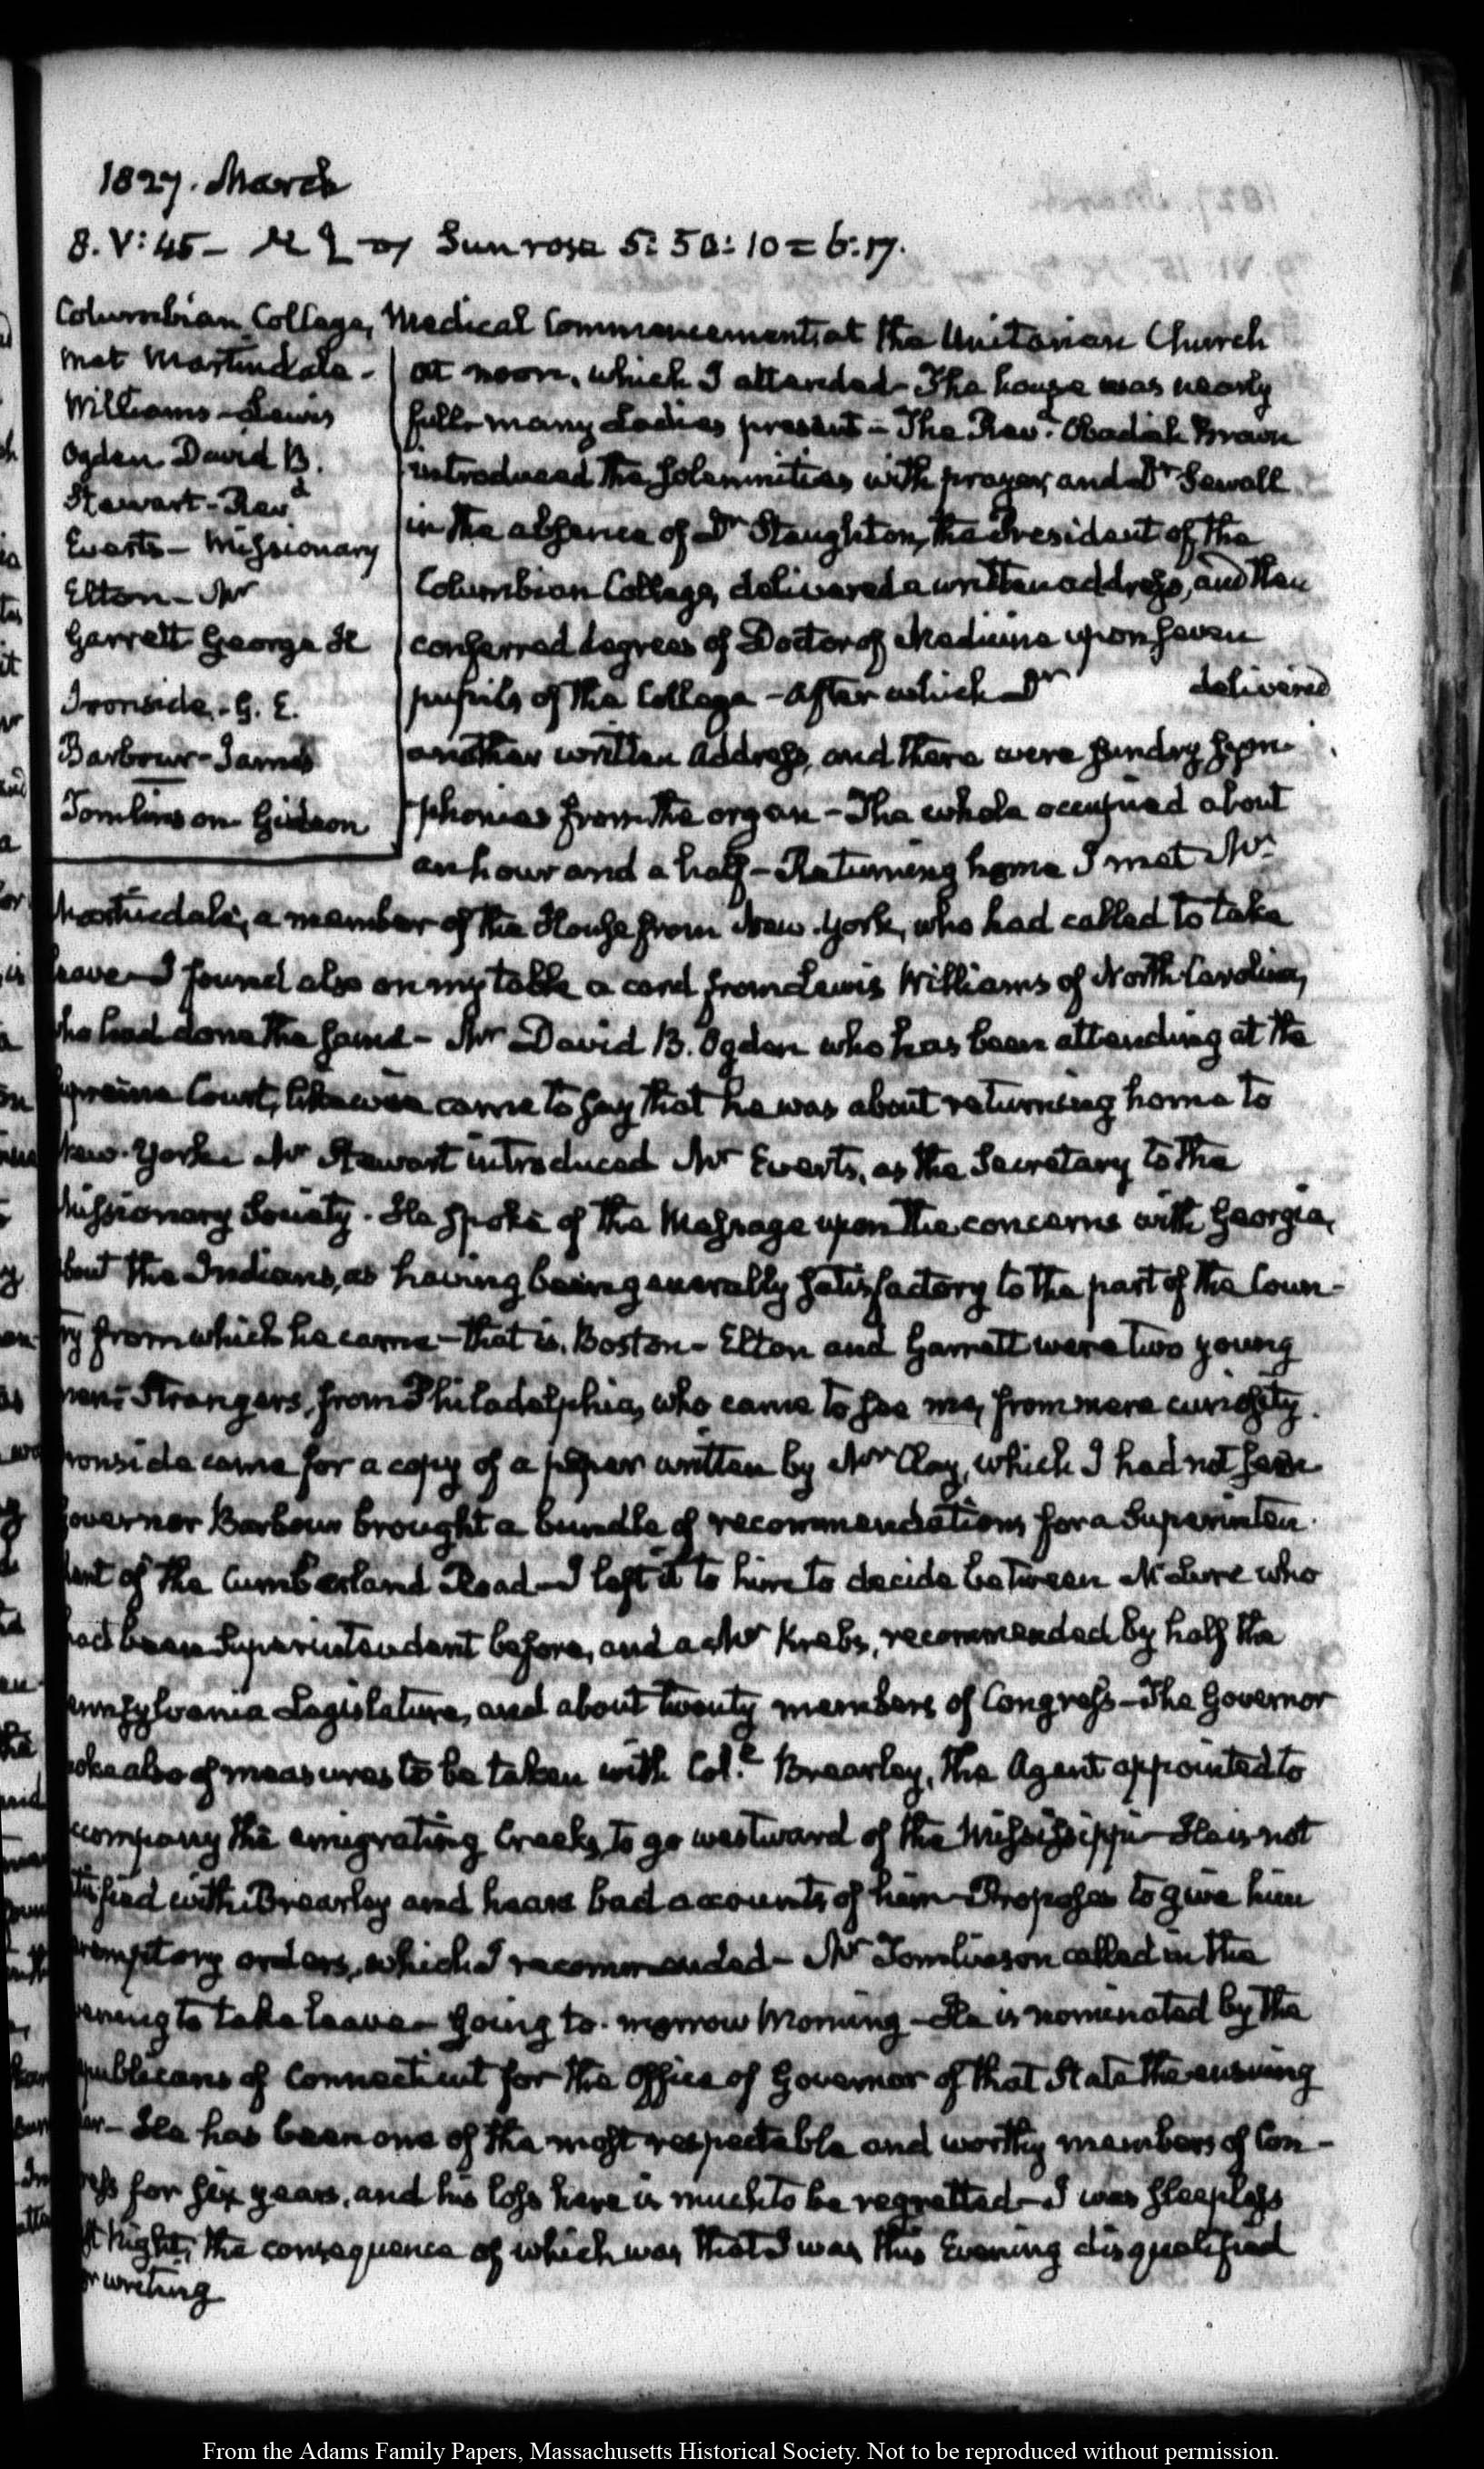 1827. March
8. V:45 - Sun rose 5:50:10 = 6:17.
Columbian College, Medical Commencement, at the Unitarian Church
met Martindale -
Williams - Lewis
Ogden David B.
Stewart - Revd
Evarts - Missionary
Elton - Mr
Garrett George H
Ironside - G. E.
Barbour - James
Tomlinson Gideon
at noon, which I attended - The house was nearly
full - many Ladies present - The Revd. Obadiah Brown
introduced the solemnities with prayer, and Dr Sewall
in the absence of Dr Staughton, the President of the
Columbian College, delivered a written address, and then
conferred degrees of Doctor of Medicine upon seven
pupils of the College - After which Dr delivered
another written Address, and there were sundry sym-
phonies from the organ - The whole occupied about
an hour and a half - Returning home I met Mr
Martindale, a member of the House from New-York, who had called to take
leave - I found also on my table a card from Lewis Williams of North-Carolina,
who had done the same - Mr David B. Ogden who has been attending at the
Supreme Court, likewise came to say that he was about returning home to
New-York - Mr Stewart introduced Mr Evarts, as the Secretary to the
Missionary Society. He spoke of the Message upon the concerns with Georgia,
about the Indians, as having being generally satisfactory to the part of the Coun-
try from which he came - that is, Boston - Elton and Garrett were two young
men: Strangers, from Philadelphia, who came to see me, from mere curiosity.
Ironside came for a copy of a paper written by Mr Clay, which I had not seen
Governor Barbour brought a bundle of recommendations for a Superinten-
dent of the Cumberland Road - I left it to him to decide between McLure who
had been Superintendent before, and a Mr Krebs, recommended by half the
Pennsylvania Legislature, and about twenty members of Congress - The Governor
spoke also of measures to be taken with Col. Brearley, the Agent appointed to
accompany the emigrating Creeks, to go westward of the Mississippi - He is not
satisfied with Brearley and hears bad accounts of him - Proposes to give him
peremptory orders, which I recommended - Mr Tomlinson called in the
evening to take leave - going to-morrow Morning - He is nominated by the
Republicans of Connecticut for the Office of Governor of that State the ensuing
year - He has been one of the most respectable and worthy members of Con-
gress for six years, and his loss here is much to be regretted - I was sleepless
last Night, the consequence of which was that I was this Evening disqualified
for writing
From the Adams Family Papers, Massachusetts Historical Society. Not to be reproduced without permission.